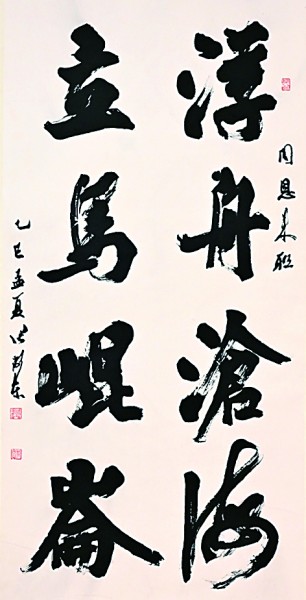 周恩来联
浮舟滄海
立馬崐崙
乙巳孟夏